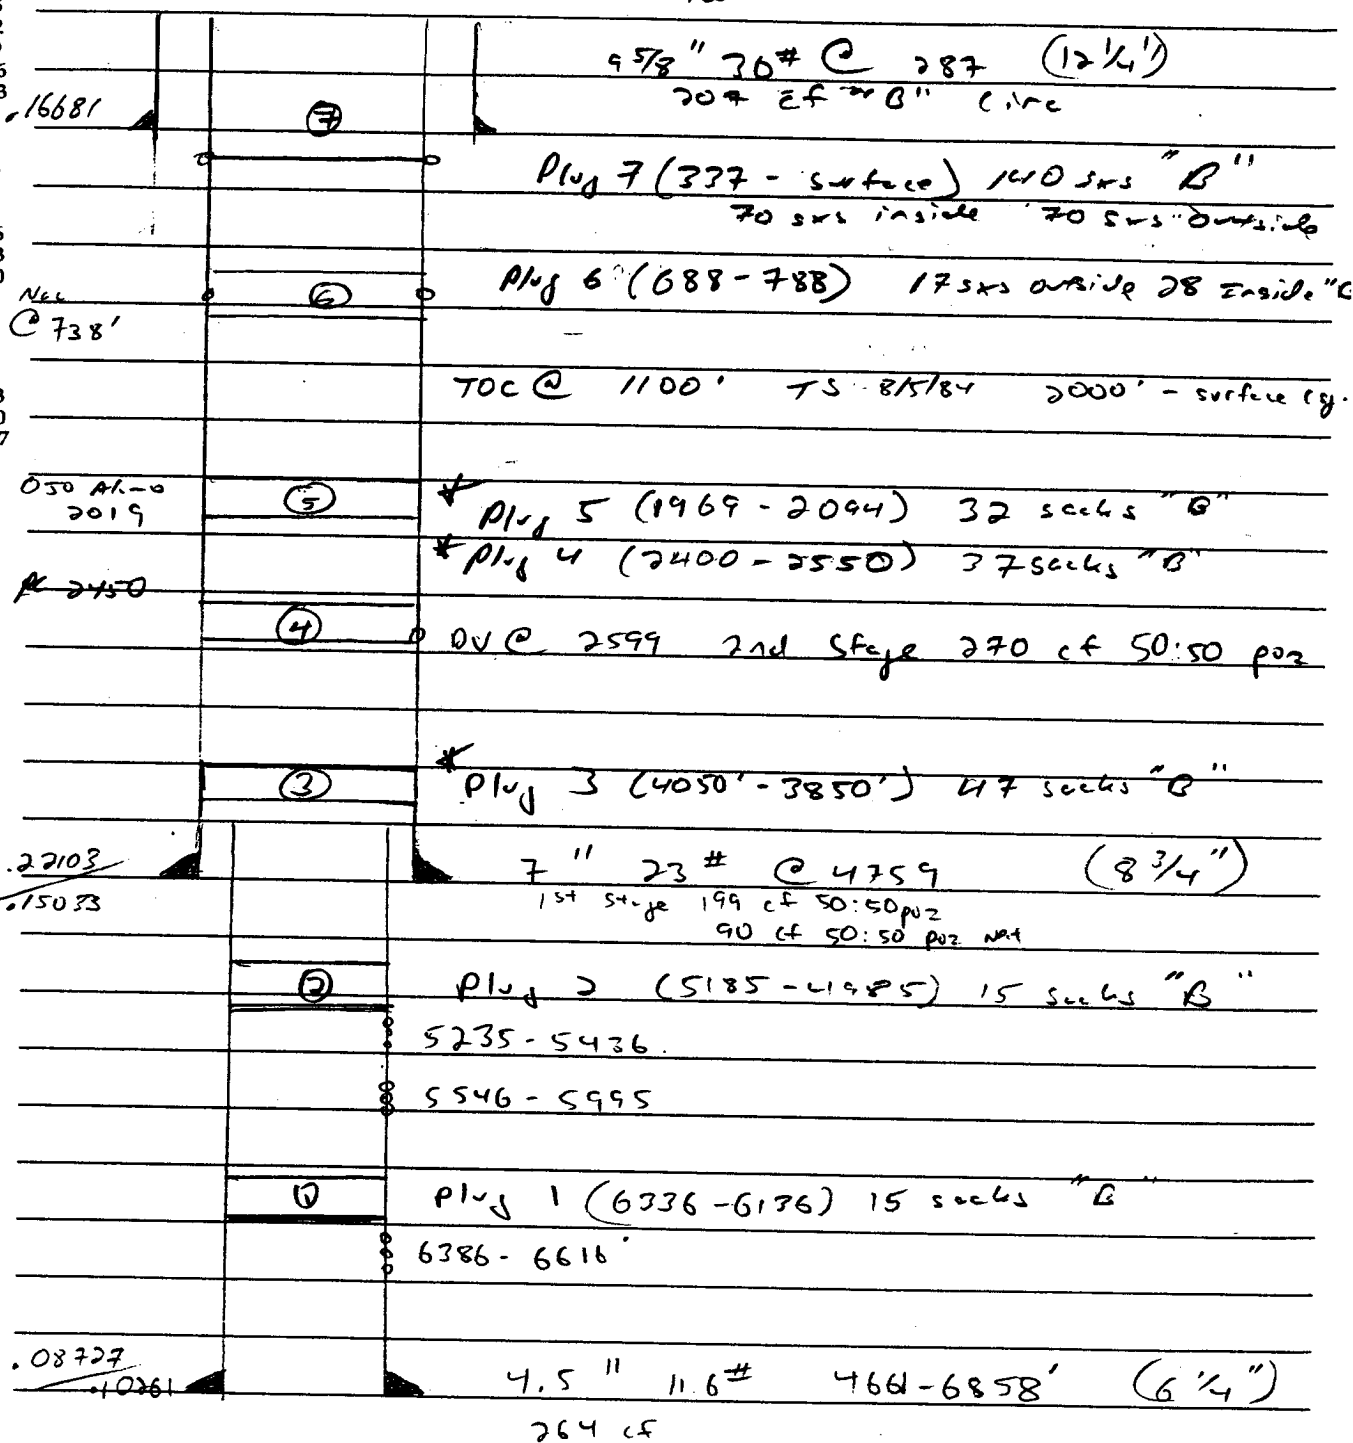 9 5/8" 30# @ 287 (12 1/4")
207 cf "B" circ
.16681
7
Plug 7 (337 - surface) 140 sxs "B"
70 sxs inside 70 sxs outside
Plug 6 (688-788) 17 sxs outside 28 Inside "B
6
Nac
@ 738'
TOC @ 1100' TS 8/5/84 2000' - surface csg.
OJO Alamo
2019
5
Plug 5 (1969-2094) 32 sacks "B"
* Plug 4 (2400-2550) 37 sacks "B"
PC 2450
4
DV @ 2599 2nd Stage 270 cf 50:50 poz
3
* Plug 3 (4050'-3850') 47 sacks "B"
.22103
.15033
7" 23# @ 4759 (8 3/4")
1st stage 199 cf 50:50 poz
90 cf 50:50 poz neat
2
Plug 2 (5185-4985) 15 sacks "B"
5235-5436
5546-5995
1
Plug 1 (6336-6136) 15 sacks "B"
6386-6616'
.08727
.10261
4.5" 11.6# 4661-6858' (6 1/4")
264 cf